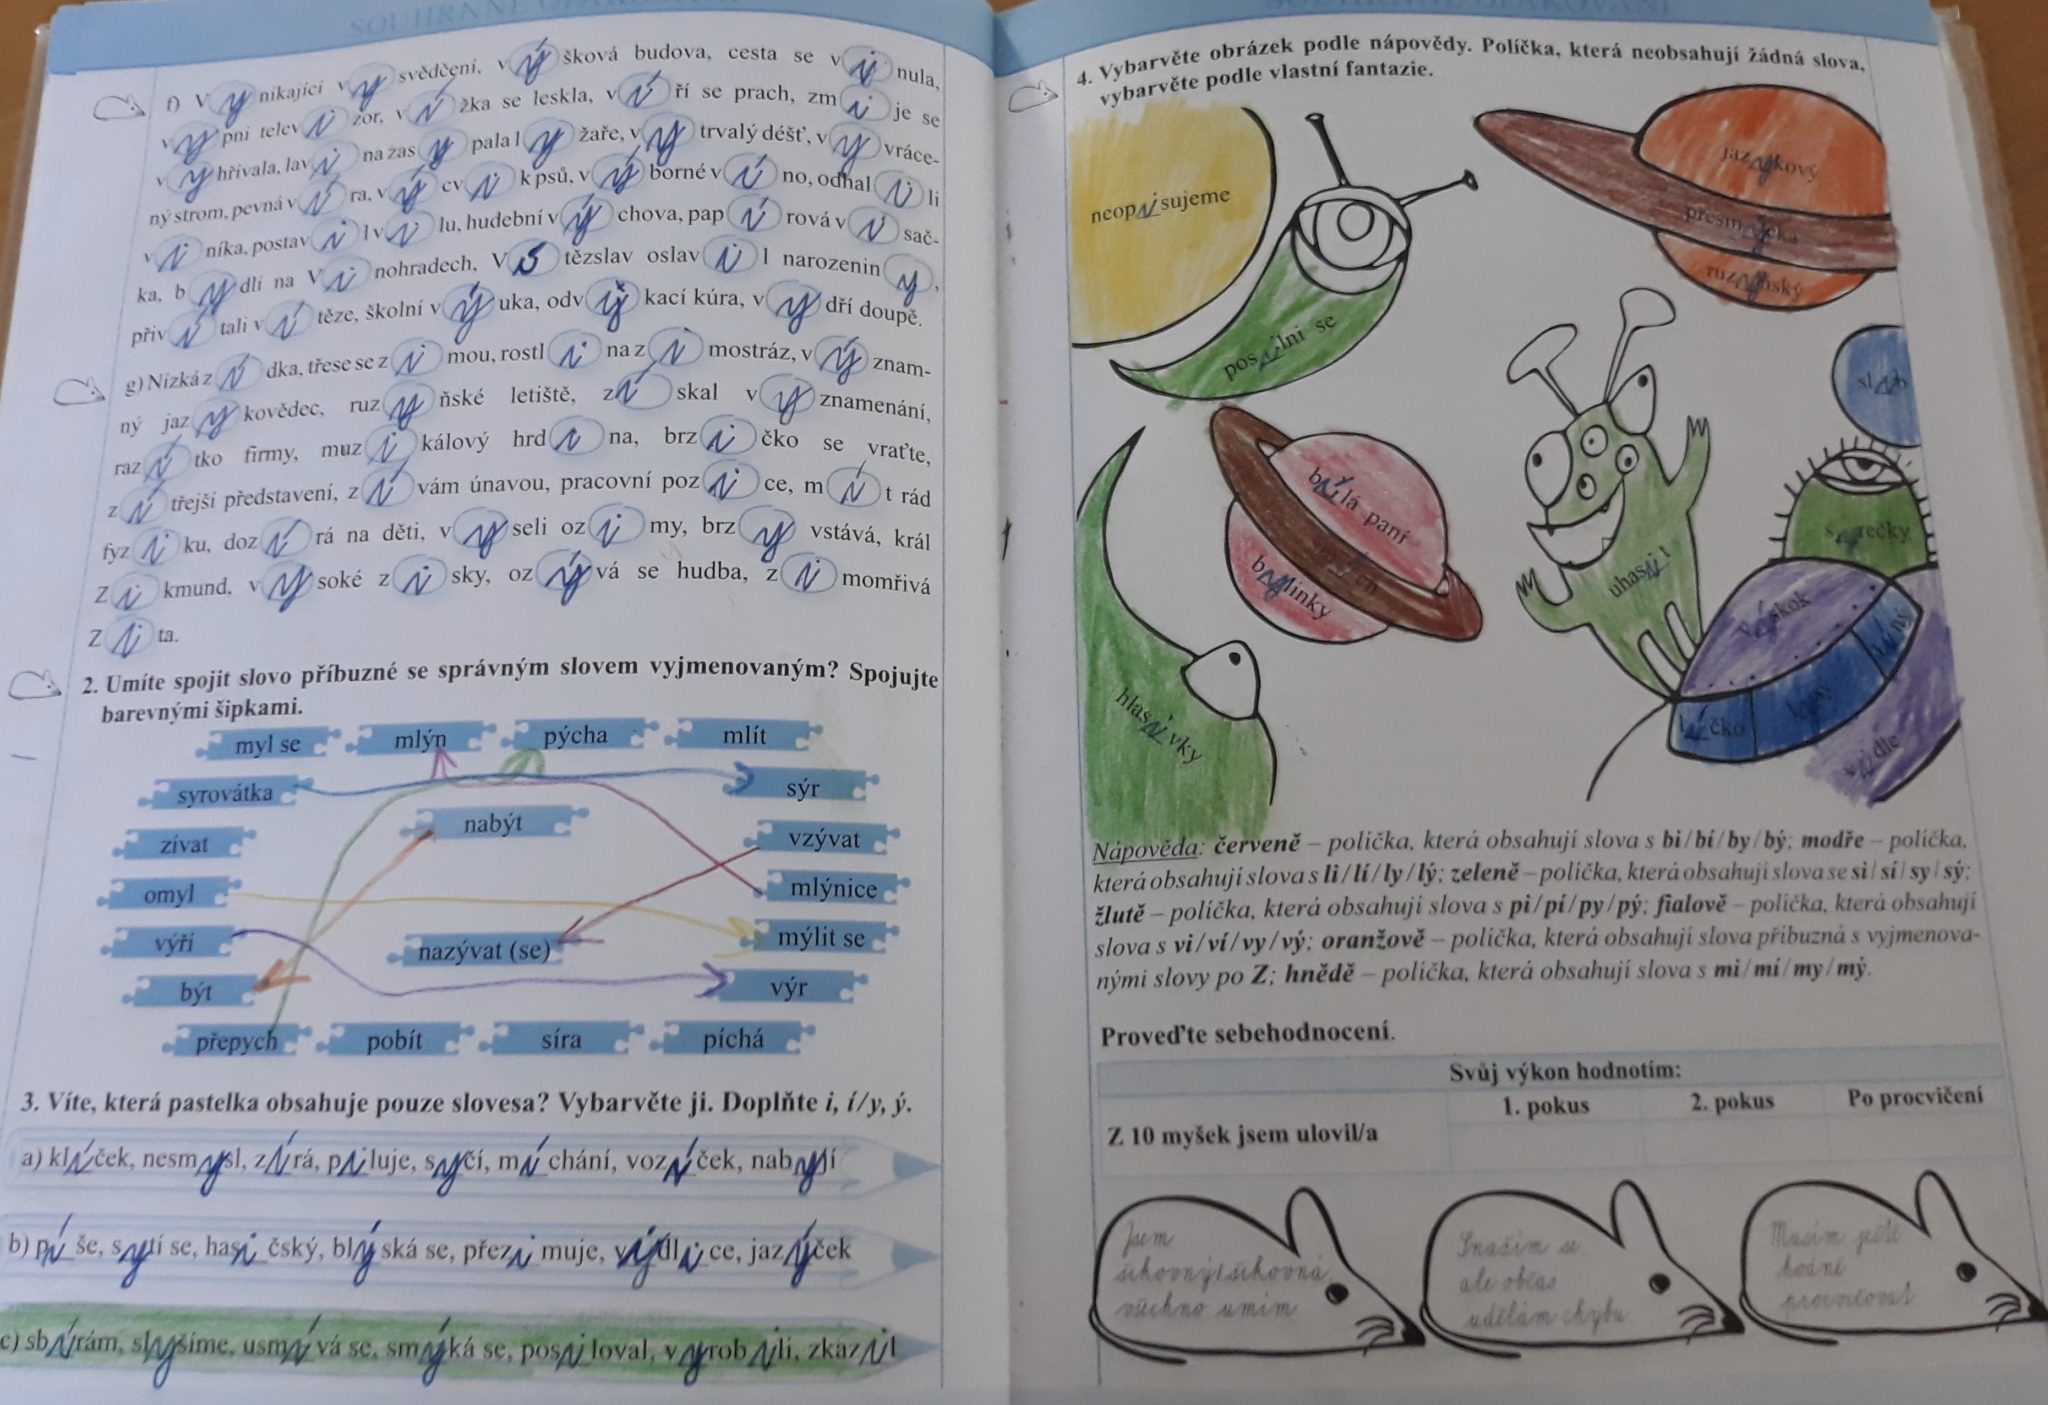 SOUHRNNÉ OPAKOVÁNÍ
f) Vynikající vysvědčení, výšková budova, cesta se vinula,
vypni televizor, vížka se leskla, víří se prach, zmije se
vyhřívala, lavina zasypala lyžaře, vytrvalý déšť, vyvráce-
ný strom, pevná víra, výcvik psů, výborné víno, odhalili
viníka, postavil vilu, hudební výchova, papírová visač-
ka, bydlí na Vinohradech, Vítězslav oslavil narozeniny,
přivítali vítěze, školní výuka, odvykací kúra, vydří doupě.
g) Nízká zídka, třese se zimou, rostlina zimostráz, význam-
ný jazykovědec, ruzyňské letiště, získal vyznamenání,
razítko firmy, muzikálový hrdina, brzičko se vraťte,
zítřejší představení, zívám únavou, pracovní pozice, mít rád
fyziku, dozírá na děti, vyseli ozimy, brzy vstává, král
Zikmund, vysoké zisky, ozývá se hudba, zimomřivá
Zita.
2. Umíte spojit slovo příbuzné se správným slovem vyjmenovaným? Spojujte
barevnými šipkami.
myl se mlýn pýcha mlít
syrovátka sýr
nabýt
zívat vzývat
omyl mlýnice
výří nazývat (se) mýlit se
být výr
přepych pobít síra píchá
3. Víte, která pastelka obsahuje pouze slovesa? Vybarvěte ji. Doplňte i, í/y, ý.
a) klíček, nesmysl, zírá, piluje, syčí, míchání, vozíček, nabyjí
b) píše, sytí se, hasičský, blýská se, přezimuje, výdlice, jazýček
c) sbírám, slyšíme, usmívá se, smýká se, posiloval, vyrobili, zkazil
SOUHRNNÉ OPAKOVÁNÍ
4. Vybarvěte obrázek podle nápovědy. Políčka, která neobsahují žádná slova,
vybarvěte podle vlastní fantazie.
neopisujeme
jazykový
přesmyčka
ruzyňský
posilni se
slib
bílá paní
bylinky
syrečky
uhasit
výskok
hlasivky
líčko
vidle
Nápověda: červeně – políčka, která obsahují slova s bi/bí/by/bý; modře – políčka,
která obsahují slova s li/lí/ly/lý; zeleně – políčka, která obsahují slova se si/sí/sy/sý;
žlutě – políčka, která obsahují slova s pi/pí/py/pý; fialově – políčka, která obsahují
slova s vi/ví/vy/vý; oranžově – políčka, která obsahují slova příbuzná s vyjmenova-
nými slovy po Z; hnědě – políčka, která obsahují slova s mi/mí/my/mý.
Proveďte sebehodnocení.
Svůj výkon hodnotím:
1. pokus 2. pokus Po procvičení
Z 10 myšek jsem ulovil/a
Jsem
šikovný/šikovná,
všechno umím.
Snažím se,
ale občas
udělám chybu.
Musím ještě
hodně
procvičovat.